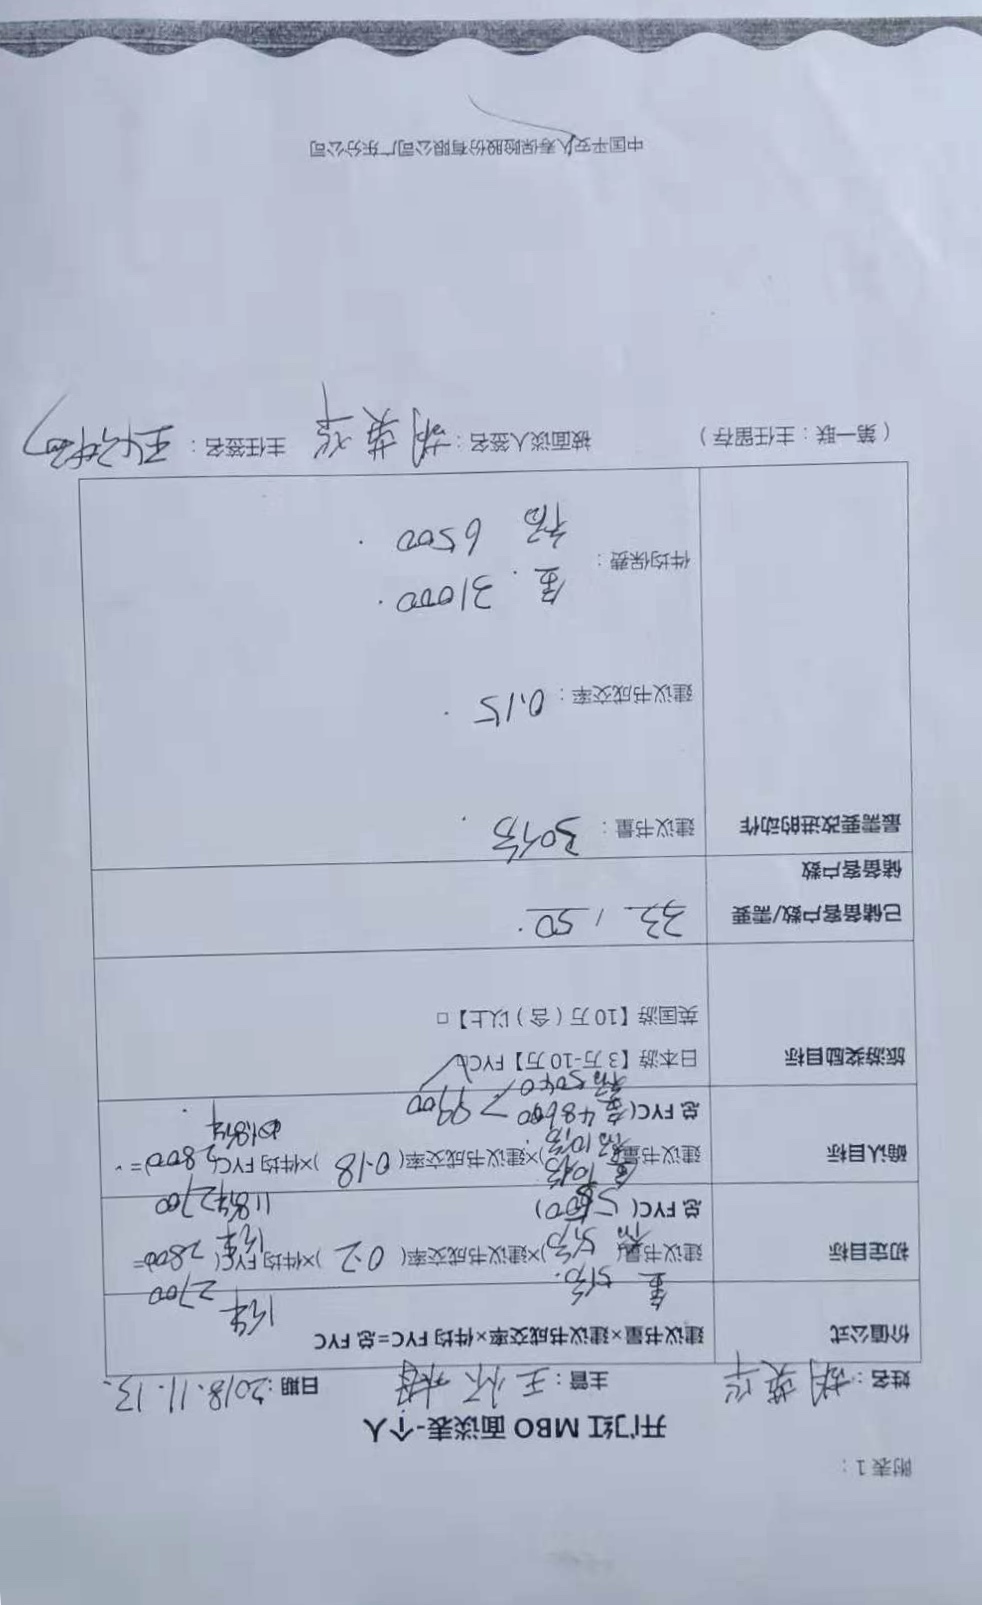 附表 1：
开门红 MBO 面谈表-个人
姓名：胡英华 主管：王怀梅 日期：2018.11.13.
价值公式 建议书量×建议书成交率×件均 FYC=总 FYC
1件
金 5份. 2700
初定目标 建议书量( 5份 )×建议书成交率( 0.2 )×件均 FYC( 2800=
福 1件
总 FYC( 5500)
金 10份
确认目标 建议书量( )×建议书成交率( 0.18 )×件均 FYC( 2800)=
福 10份 1.8件
总 FYC(
金 4860 > 9900
福 5040
旅游奖励目标 日本游【3 万-10 万】FYC
英国游【10 万（含）以上】□
已储备客户数/需要储备客户数 33 / 50.
最需要改进的动作 建议书量：30份
建议书成交率：0.15
件均保费：金. 31000.
福 6500
（第一联：主任留存） 被面谈人签名：胡英华 主任签名：
中国平安人寿保险股份有限公司广东分公司